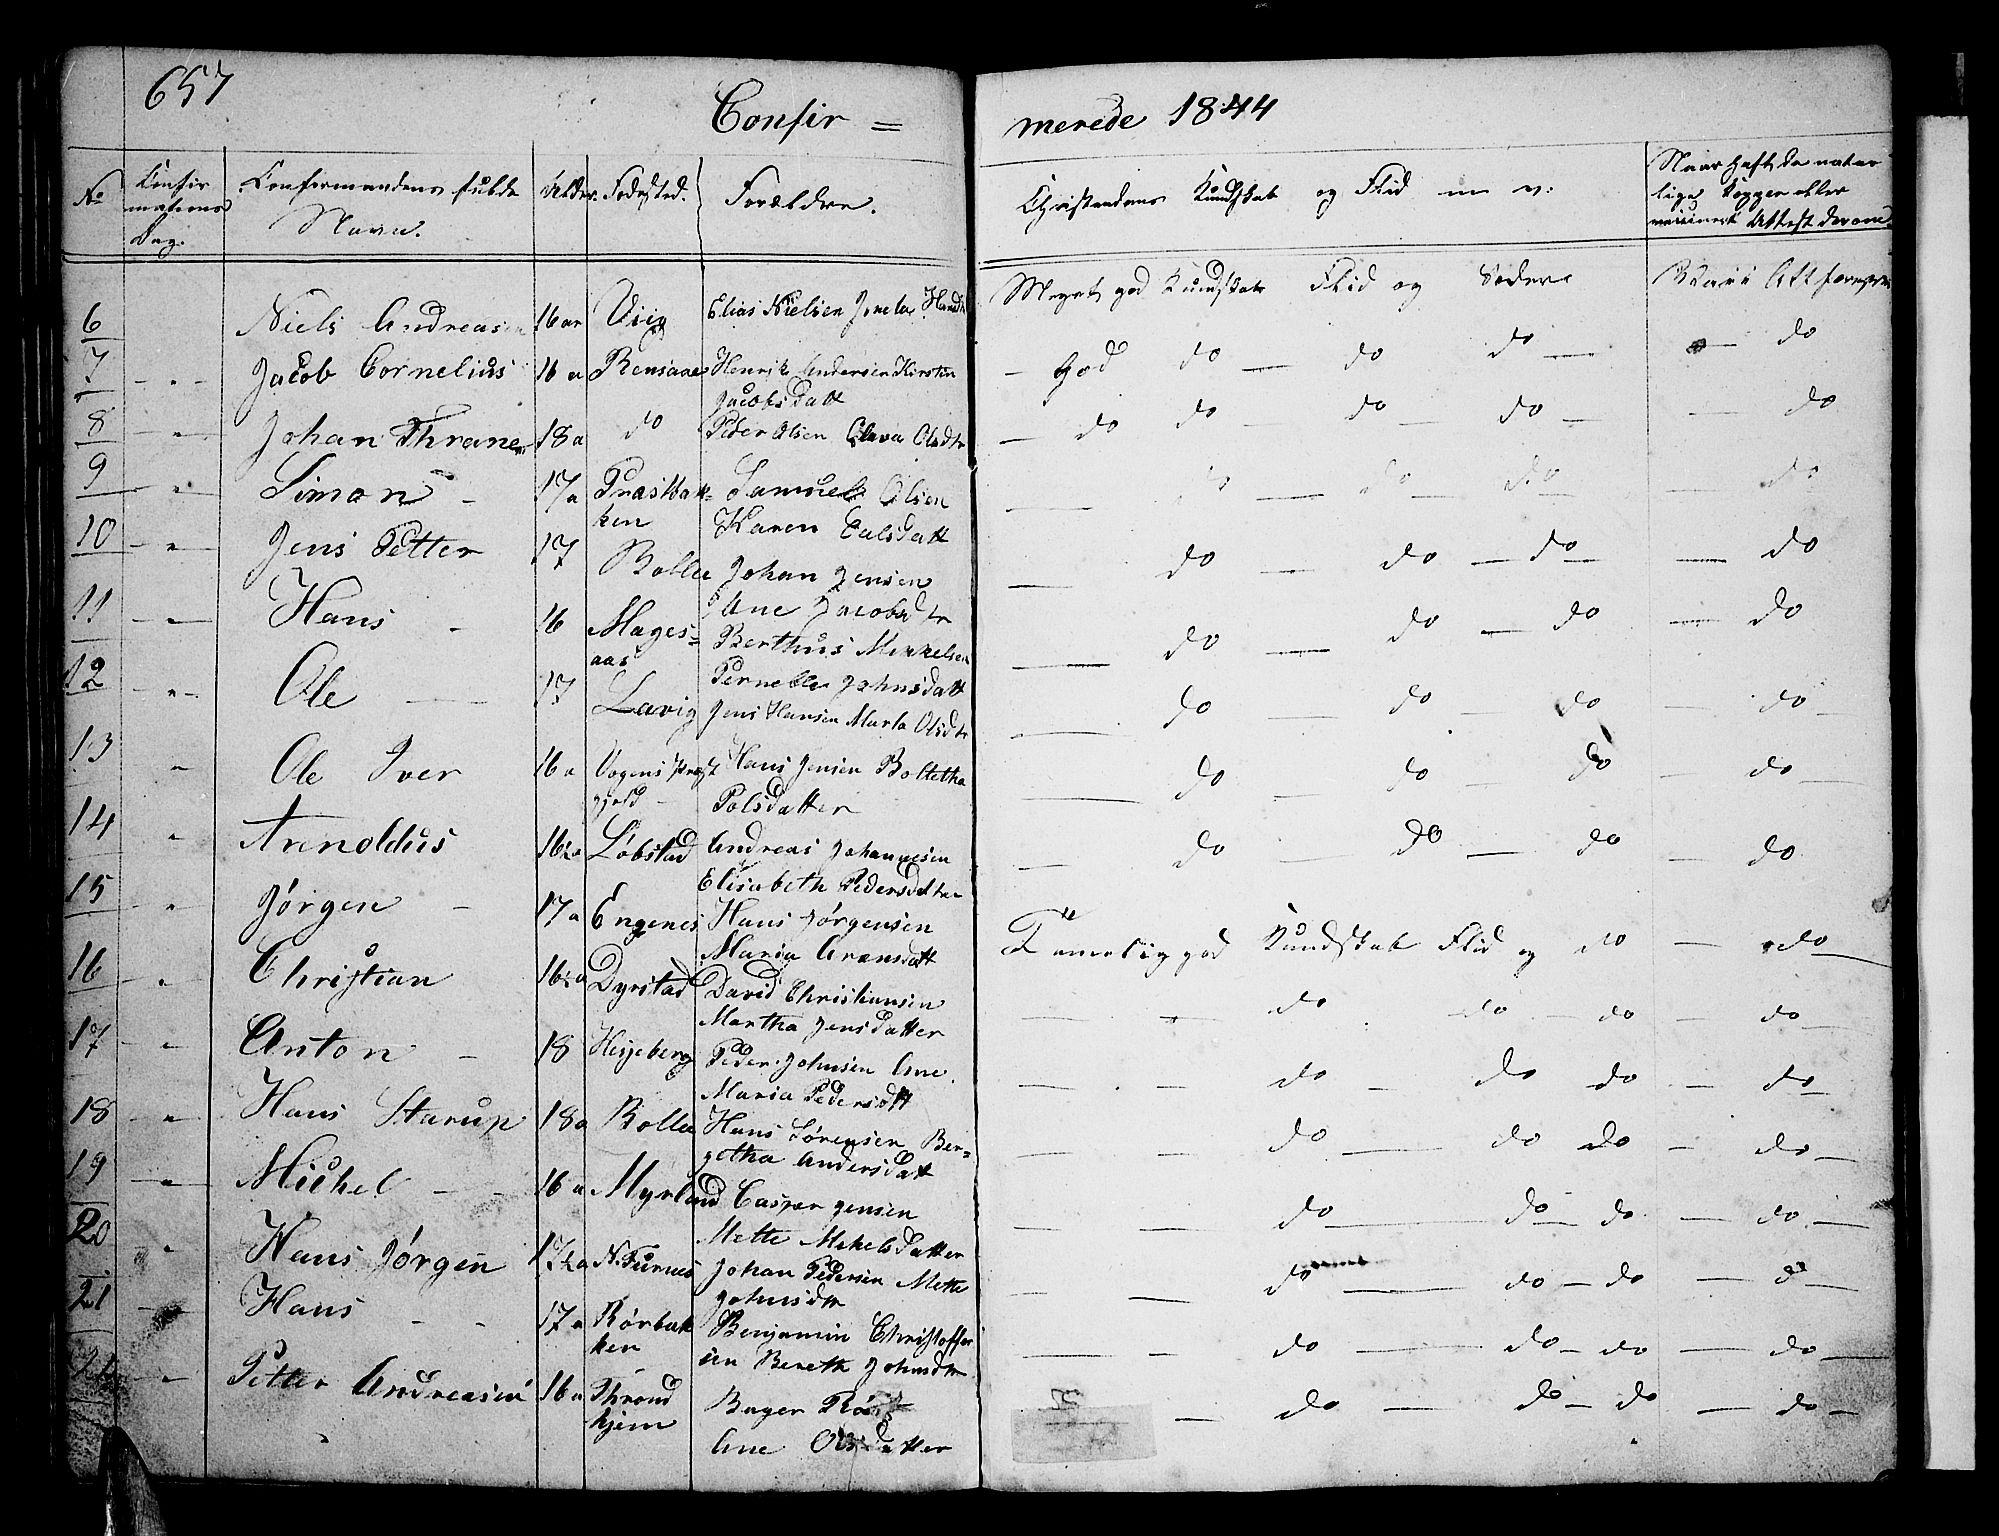 657
Confir = merede 1844
No Confirmations Dag. Confirmandens fulde Navn. Alder. Fødested. Forældre. Christendoms Kundskab og Flid m. v: Naar haft de naturlige Kopper eller vaccineret Attest derom
6 Niels Andreasen 16 aar Viig Elias Nielsen Meget god Kundskab Flid og Sæder
7 - " - Jacob Cornelius 16 a Rensaae Henrik Andersen Kirstin - God do - do do - do
Jacobsdatt
8 - " - Johan Thrane 18 a do Peder Olsen Olava Olsdtr - do do - do - do - - do
9 - " - Simon - 17 a Præstbak= Samuel Olsen - do - do - do - do
ken Karen
10 - " - Jens Petter 17 Bolle Johan Jensen - do - do - do - do
Ane Jacobsdtr
11 - " - Hans - 16 Mages= Berthus Mikkelsen - do - do - do - do
aas Pernelle Johnsdatt
12 - " - Ole - 17 Lavig Jens Hansen Marta Olsdtr - do - do - do - do -
13 " Ole Iver 16 a Vogens Præst Hans Jensen Boletha - do - do - do - do -
gjeld Polsdatter
14 " Arnoldus 16½ a Løbstad Andreas Johannesen - do - do - do - do
Elisabeth Pedersdatter
15 " Jørgen - 17 a Engenes Hans Jørgensen Temelig god Kundskab Flid og do - do
Maria Aronsdatt
16 " Christian 16½ a Dyrstad David Christiansen - - do do - do - do -
Martha Jensdatter
17 - " Anton - 18 Hesjeberg Peder Johnsen Ane - - do - do do - do
Maria Pedersdtt
18 - " - Hans Starup 18 a Bolle Hans Sørensen Ber= - - do - do do - do -
getha Andersdatt
19 - " - Michel - - 16 a Myrland Casper Jensen - - do - do - do - do -
Mette Mikelsdatter
20 " Hans Jørgen 17½ a N. Furnes Johan Pedersen Mette - - do - do - do - do -
Johnsdtr
21 - " - Hans - - 17 a Rørbak Benjamin Christoffer - - do do - do - do -
ken sen Bereth Johnsdtr
22 - " - Petter Andreasen 16 a Thrond Bager - do - do - do - do -
hjem Ane Olsdatter